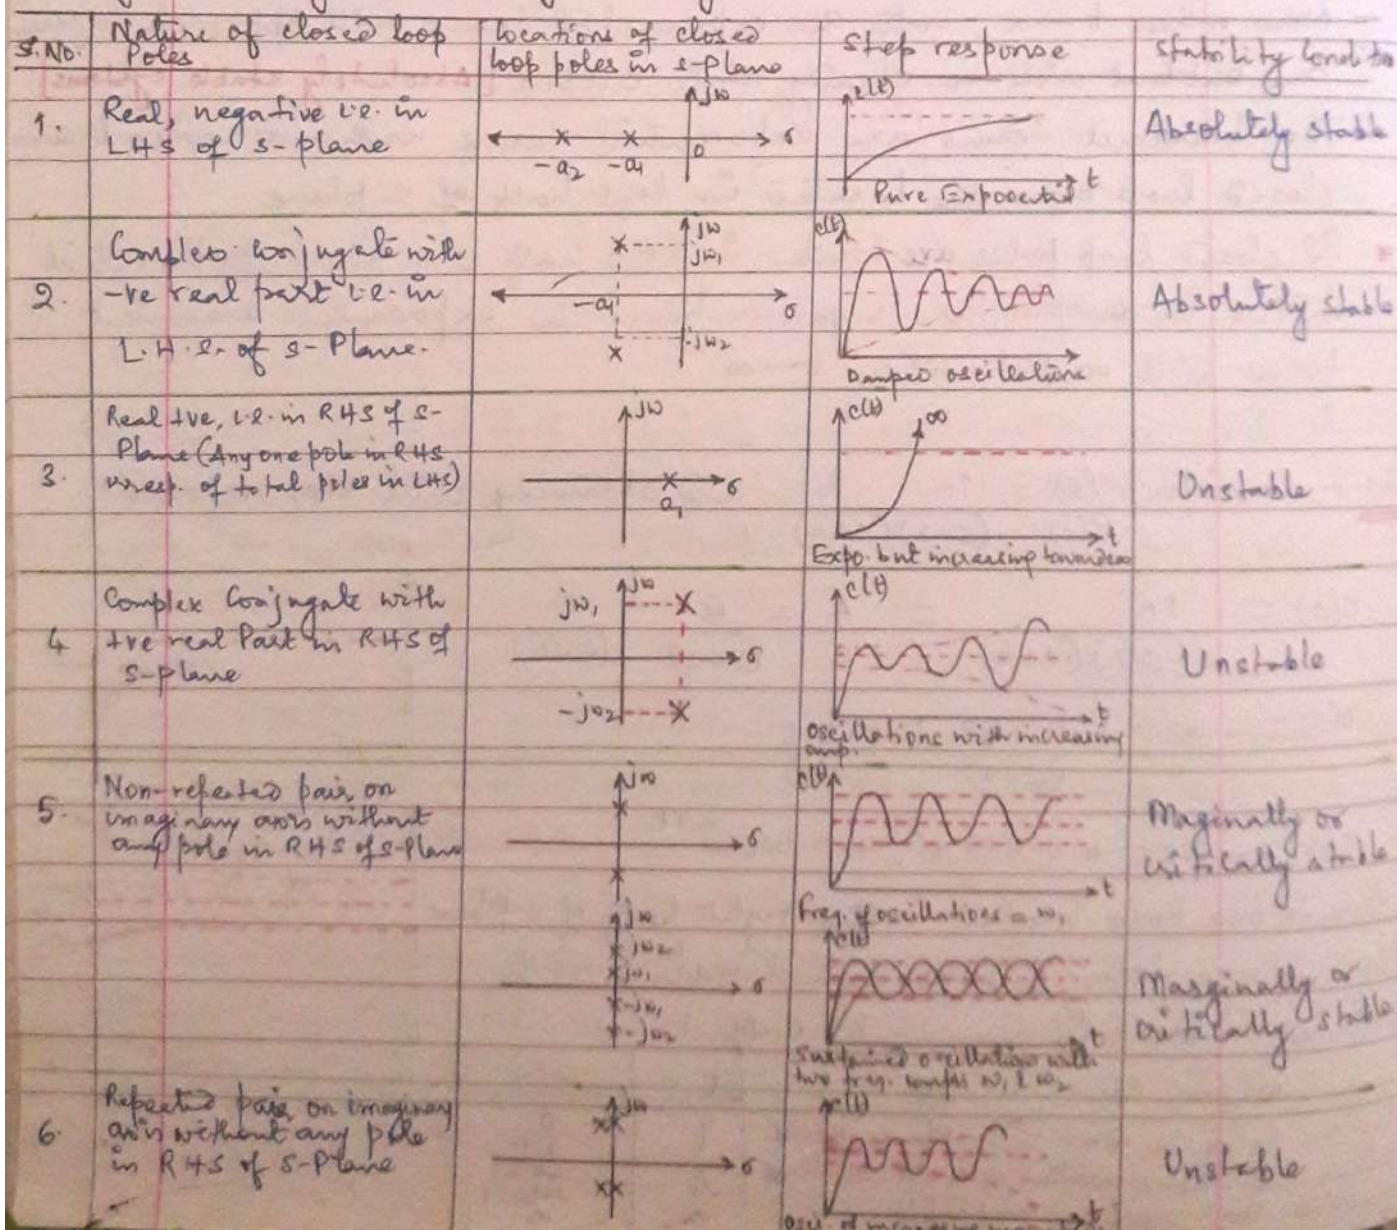 S.No.
Nature of closed loop
Poles
Locations of closed
loop poles in s-plane
Step response
Stability condition
1.
Real, negative i.e. in
LHS of s-plane
jω
σ
-a2 -a1 0
c(t)
t
Pure Exponential
Absolutely stable
2.
Complex conjugate with
-ve real part i.e. in
L.H.S. of s-Plane.
jω
jω1
-a1
σ
-jω2
c(t)
Damped oscillations
Absolutely stable
3.
Real +ve, i.e. in RHS of s-
Plane (Any one pole in RHS
irresp. of total poles in LHS)
jω
σ
a1
c(t)
∞
t
Expo. but increasing towards ∞
Unstable
4
Complex Conjugate with
+ve real Part in RHS of
s-plane
jω
jω1
σ
-jω2
c(t)
t
Oscillations with increasing
amp.
Unstable
5.
Non-repeated pair on
imaginary axis without
any pole in RHS of s-Plane
jω
σ
c(t)
t
Freq. of oscillations = ω1
Maginally or
critically stable
jω
jω2
jω1
σ
-jω1
-jω2
c(t)
t
Sustained oscillations with
two freq. ω1 & ω2
Marginally or
critically stable
6.
Repeated pair on imaginary
axis without any pole
in RHS of S-Plane
jω
σ
c(t)
t
Osci. of increasing
Unstable